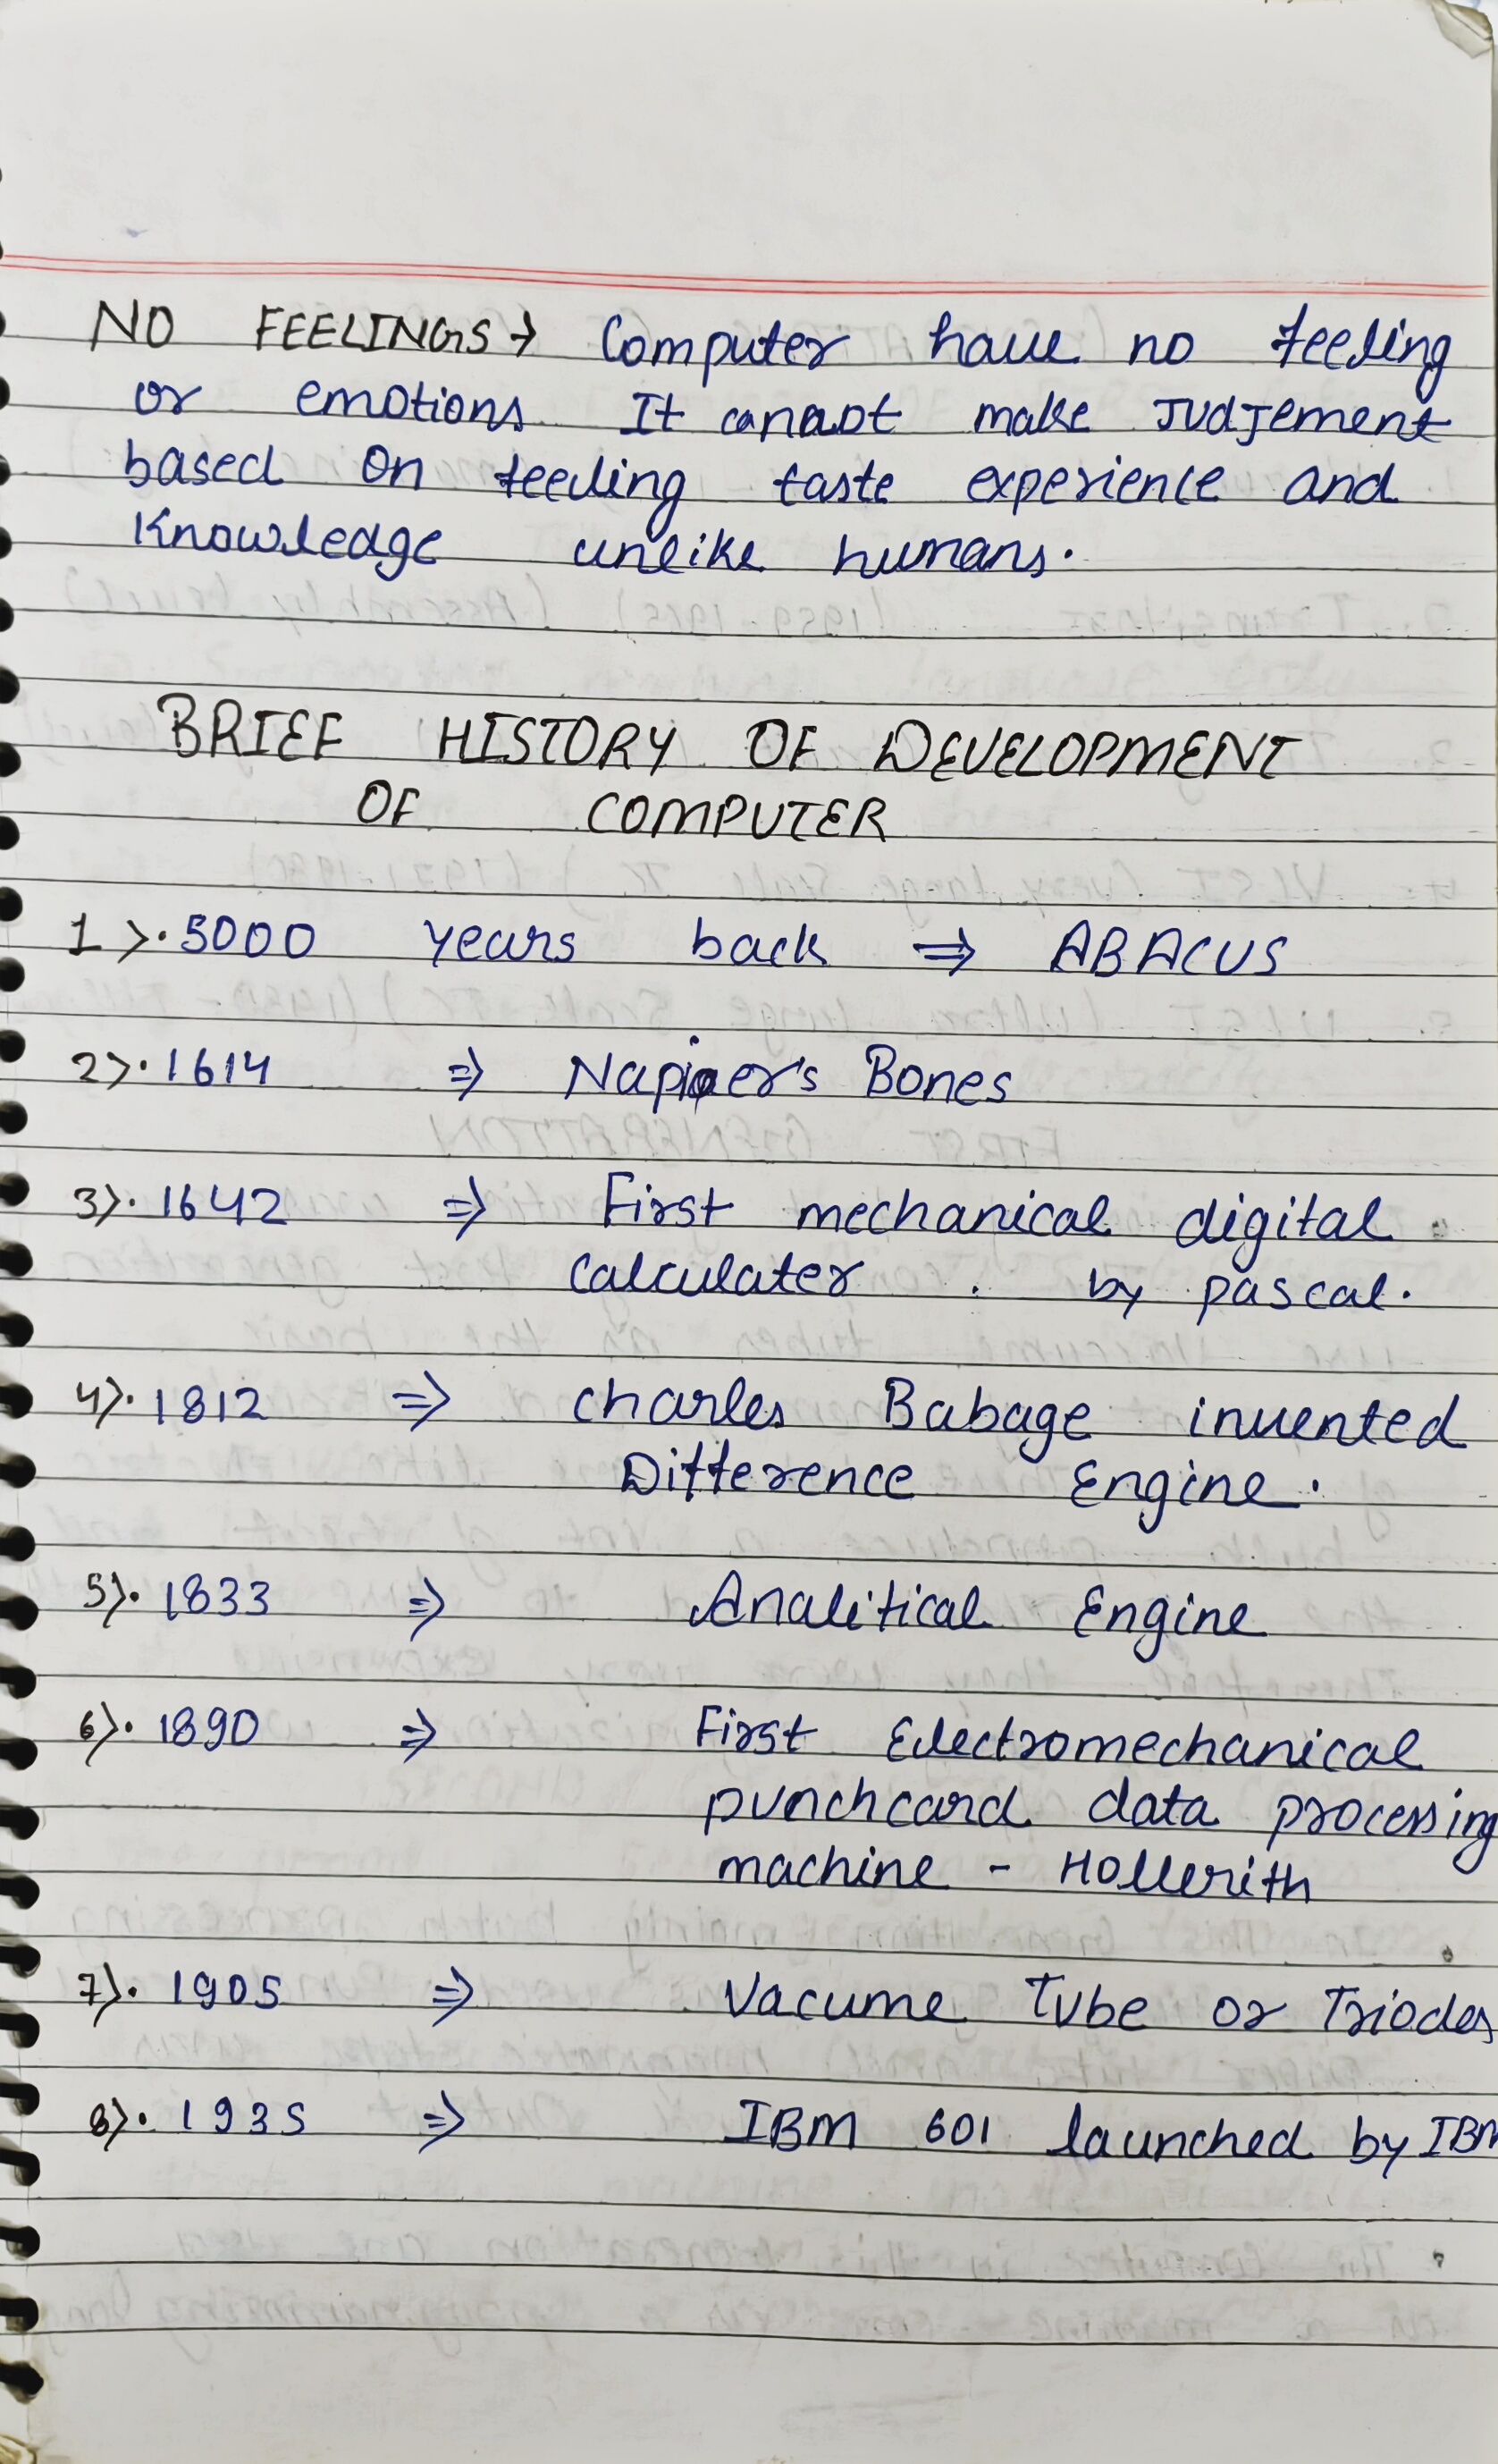 NO FEELINGS → Computer have no feeling
or emotions. It cannot make Judjement
based on feeling taste experience and
Knowledge unlike humans.
BRIEF HISTORY OF DEVELOPMENT
OF COMPUTER
1>. 5000 years back ⇒ ABACUS
2>. 1614 ⇒ Napier's Bones
3>. 1642 ⇒ First mechanical digital
calculater . by pascal.
4>. 1812 ⇒ charles Babage invented
Difference Engine.
5>. 1833 ⇒ Analitical Engine
6>. 1890 ⇒ First Electromechanical
punchcard data processing
machine - Hollerith
7>. 1905 ⇒ Vacume Tube or Triodes
8>. 1935 ⇒ IBM 601 launched by IBM